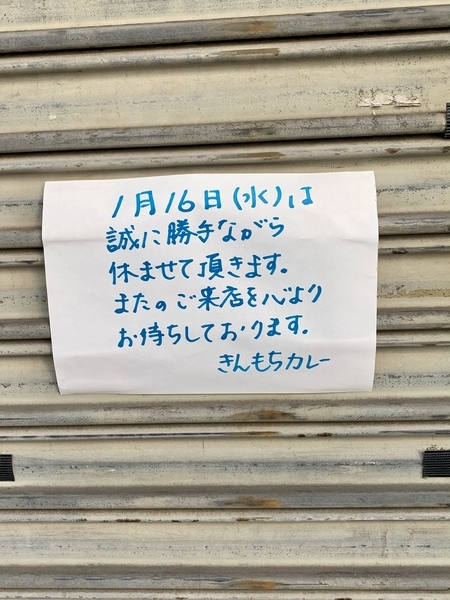 1月16日(水)は
誠に勝手ながら
休ませて頂きます。
またのご来店を心より
お待ちしております。
きんもちカレー